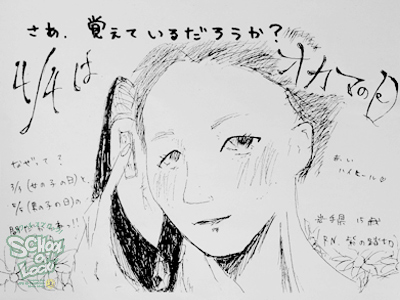 さあ、覚えているだろうか?
4/4は
オカマの日
なぜって?
3/3(女の子の日)と
5/5(男の子の日)の
間だから!!
赤い
ハイヒール
岩手県 15歳
SCHOOL
OF
LOCK!